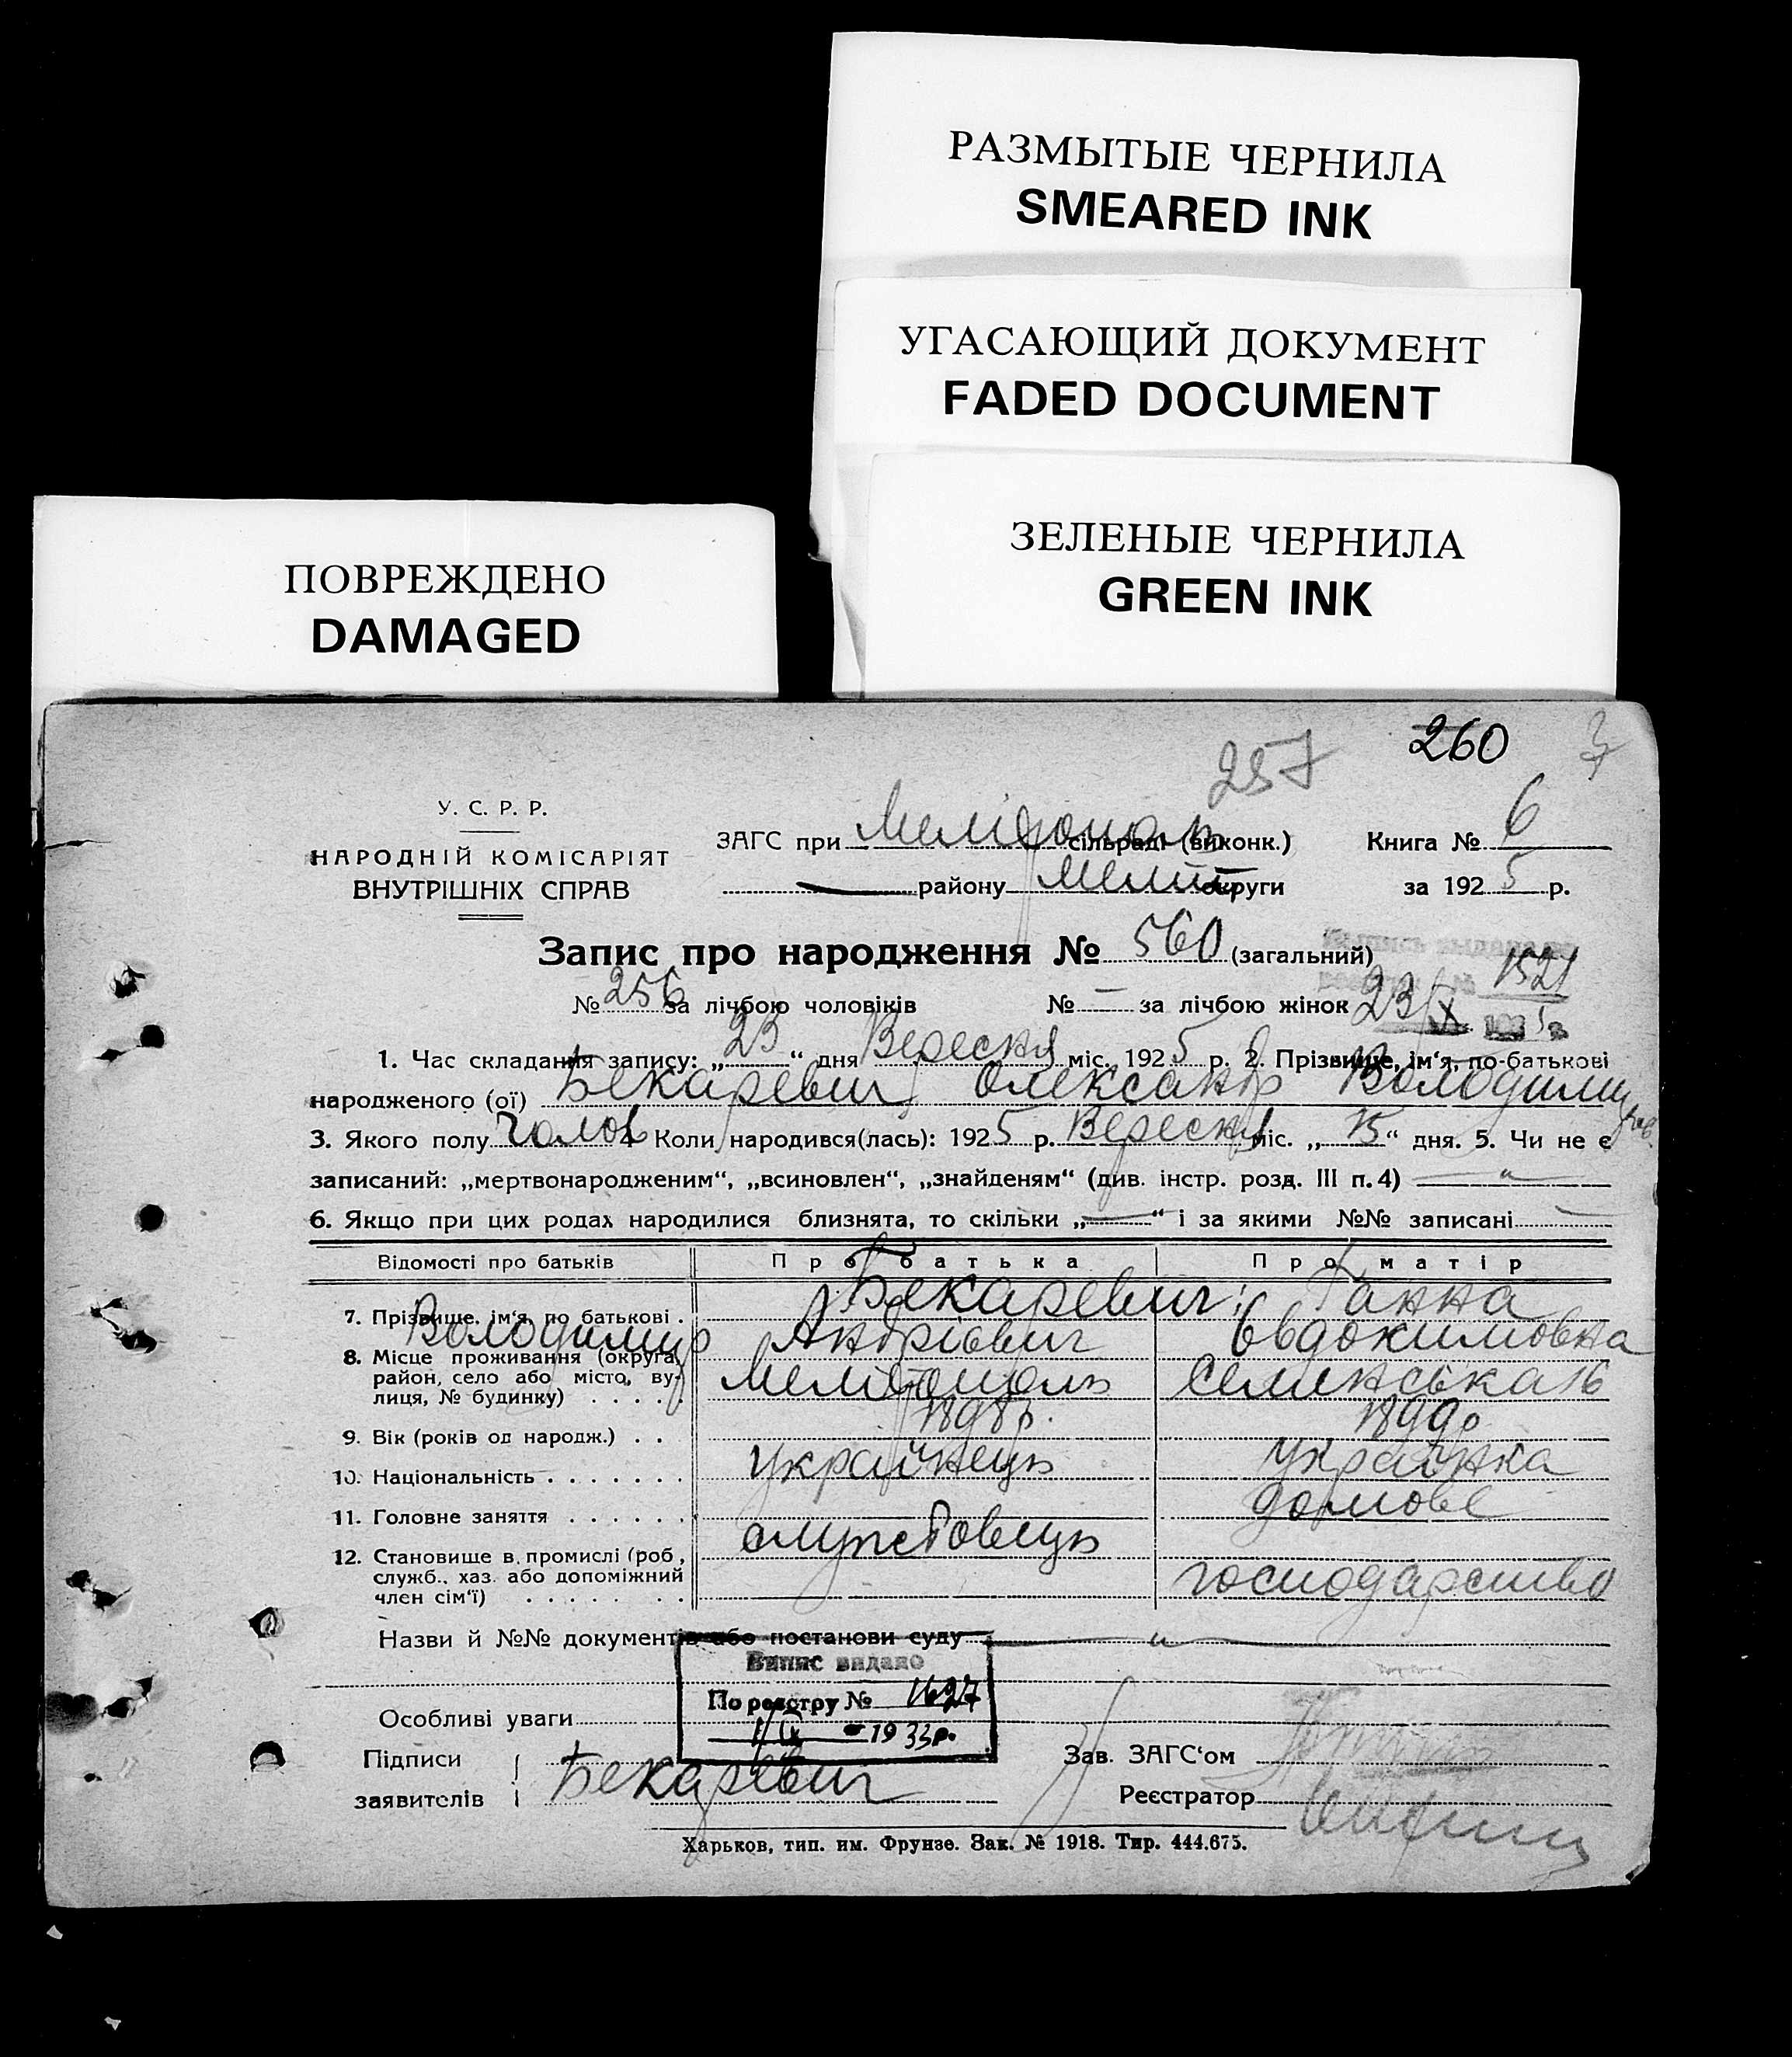 РАЗМЫТЫЕ ЧЕРНИЛА
SMEARED INK
УГАСАЮЩИЙ ДОКУМЕНТ
FADED DOCUMENT
ЗЕЛЕНЫЕ ЧЕРНИЛА
GREEN INK
ПОВРЕЖДЕНО
DAMAGED
260
257
У. С. Р. Р.
НАРОДНІЙ КОМІСАРІЯТ
ВНУТРІШНІХ СПРАВ
ЗАГС при Мелітополь сільраді (виконк.) Книга № 6
— району Меліт округи за 1925 р.
Запис про народження № 560 (загальний)
1521
№ 256 за лічбою чоловіків № — за лічбою жінок 23/X
1. Час складання запису: „23“ дня Вересня міс. 1925 р. 2. Прізвище, ім‘я, по-батькові
народженого (ої) Бекаревич Олександр Володимиров.
3. Якого полу чолов 4 Коли народився(лась): 1925 р. Вересня міс. „15“ дня. 5. Чи не є
записаний: „мертвонародженим“, „всиновлен“, „знайденям“ (див. інстр. розд. III п. 4) — „ —
6. Якщо при цих родах народилися близнята, то скільки „—“ і за якими №№ записані —
Відомості про батьків Про батька Про матір
7. Прізвище, ім‘я, по батькові . Бекаревич: Ганна
Володимир Андрієвич Евдокимовна
8. Місце проживання (округа, район, село або місто, вулиця, № будинку) . . . . . Мелітополь Семенська 16
9. Вік (років од народж.) . . 1898р. 1899р
10. Національність . . . . . . . українець українка
11. Головне заняття . . . . . . . домове
12. Становище в промислі (роб, служб., хаз. або допоміжний член сім‘ї) . . . . . . . службовець господарство
Назви й №№ документів або постанови суду — „ —
Випис видано
По реєстру № 1627
1933р.
Особливі уваги
Підписи
заявителів Бекаревич
Зав. ЗАГС‘ом
Реєстратор
Харьков, тип. им. Фрунзе. Зак. № 1918. Тир. 444.675.